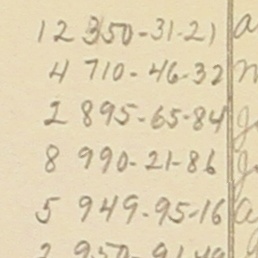 12 350-31-21 a
4 710-46-32
2 895-65-84
8 990-21-86
5 949-95-16 a
2 950-91-49